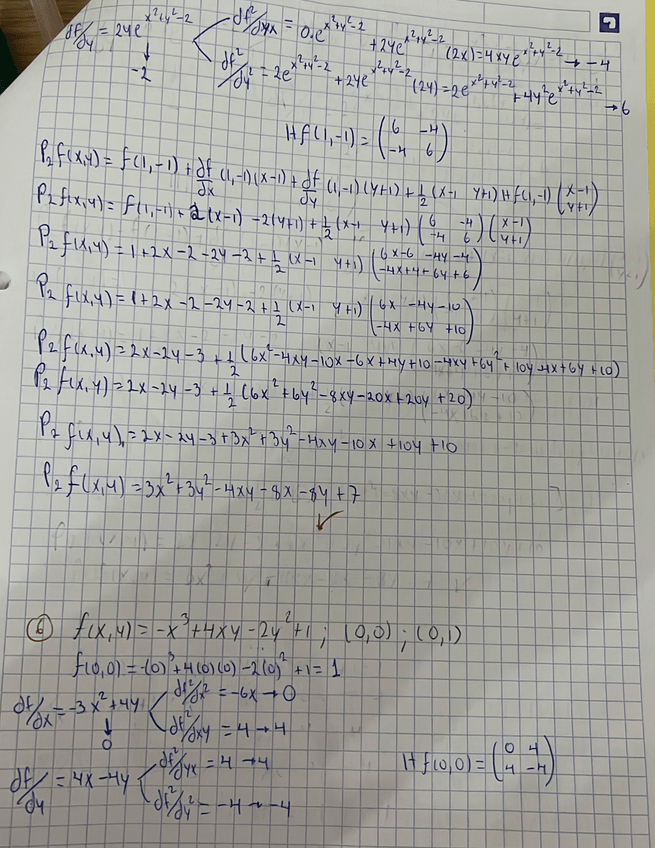 df/dy = 2ye^(x²+y²-2) → -2
df²/dyx = 0·e^(x²+y²-2) + 2ye^(x²+y²-2) (2x) = 4xye^(x²+y²-2) → -4
df²/dy² = 2e^(x²+y²-2) + 2ye^(x²+y²-2) (2y) = 2e^(x²+y²-2) + 4y²e^(x²+y²-2) → 6
Hf(1,-1) = (6 -4 / -4 6)
P₂f(x,y) = f(1,-1) + df/dx (1,-1)(x-1) + df/dy (1,-1)(y+1) + 1/2 (x-1 y+1) Hf(1,-1) (x-1 / y+1)
P₂f(x,y) = f(1,-1) + 2(x-1) - 2(y+1) + 1/2 (x-1 y+1) (6 -4 / -4 6) (x-1 / y+1)
P₂f(x,y) = 1+2x-2-2y-2 + 1/2 (x-1 y+1) (6x-6 -4y-4 / -4x+4+6y+6)
P₂f(x,y) = 1+2x-2-2y-2 + 1/2 (x-1 y+1) (6x -4y-10 / -4x +6y +10)
P₂f(x,y) = 2x-2y-3 + 1/2 (6x²-4xy-10x-6x+4y+10-4xy+6y²+10y-4x+6y+10)
P₂f(x,y) = 2x-2y-3 + 1/2 (6x²+6y²-8xy-20x+20y+20)
P₂f(x,y) = 2x-2y-3+3x²+3y²-4xy-10x+10y+10
P₂f(x,y) = 3x²+3y²-4xy-8x-8y+7
✓
⑥ f(x,y) = -x³+4xy-2y²+1 ; (0,0) ; (0,1)
f(0,0) = -(0)³+4(0)(0)-2(0)²+1 = 1
df/dx = -3x²+4y → 0
df²/dx² = -6x → 0
df²/dxy = 4 → 4
df/dy = 4x-4y
df²/dyx = 4 → 4
df²/dy² = -4 → -4
Hf(0,0) = (0 4 / 4 -4)